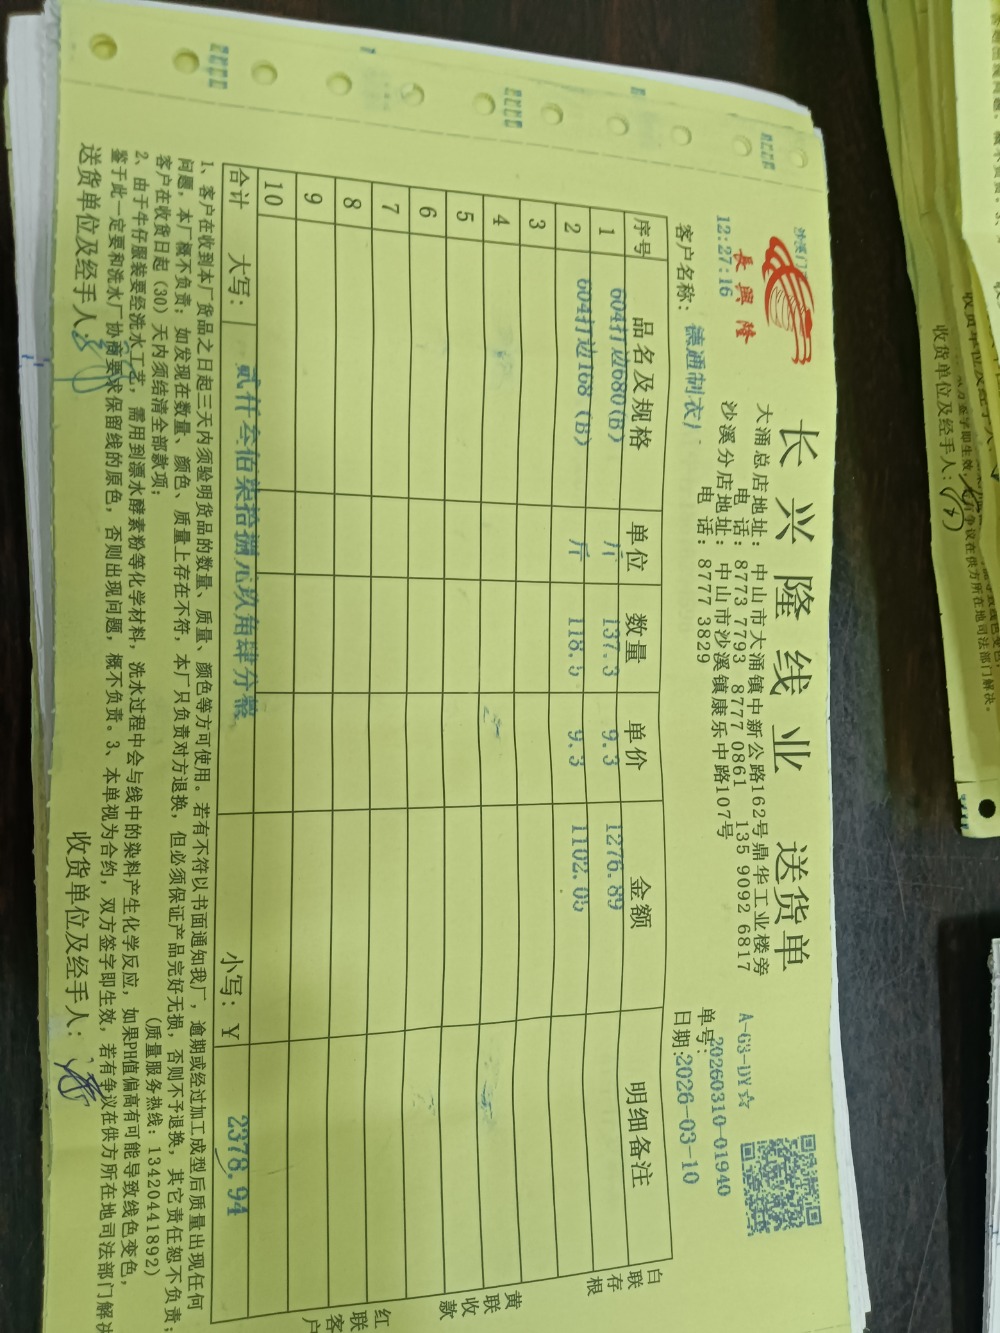 沙溪门
長興隆
12:27:16
长兴隆线业 送货单
A-G3-DY☆
大涌总店地址：中山市大涌镇中新公路162号鼎华工业楼旁
电话：8773 7793 8777 0861 135 9092 6817
沙溪分店地址：中山市沙溪镇康乐中路107号
电话：8777 3829
单号：20260310-01940
客户名称：德通制衣厂
日期：2026-03-10
序号 品名及规格 单位 数量 单价 金额 明细备注
1 604打边680(B) 斤 137.3 9.3 1276.89
2 604打边168(B) 斤 118.5 9.3 1102.05
3
4
5
6
7
8
9
10
合计 大写：贰仟叁佰柒拾捌元玖角肆分整 小写：￥ 2378.94
白联存根
黄联收款
红联客户
1、客户在收到本厂货品之日起三天内须验明货品的数量、质量、颜色等方可使用。若有不符以书面通知我厂，逾期或经过加工成型后质量出现任何
问题，本厂概不负责；如发现在数量、颜色、质量上存在不符，本厂只负责对方退换，但必须保证产品完好无损，否则不予退换，其它责任恕不负责；
客户在收货日起（30）天内须结清全部款项；
（质量服务热线：13420441892）
2、由于牛仔服装要经洗水工艺，需用到漂水酵素粉等化学材料，洗水过程中会与线中的染料产生化学反应，如果PH值偏高有可能导致线色变色，
鉴于此一定要和洗水厂协商要求保留线的原色，否则出现问题，概不负责。3、本单视为合约，双方签字即生效，若有争议在供方所在地司法部门解决
送货单位及经手人：
收货单位及经手人：
收货单位及经手人：